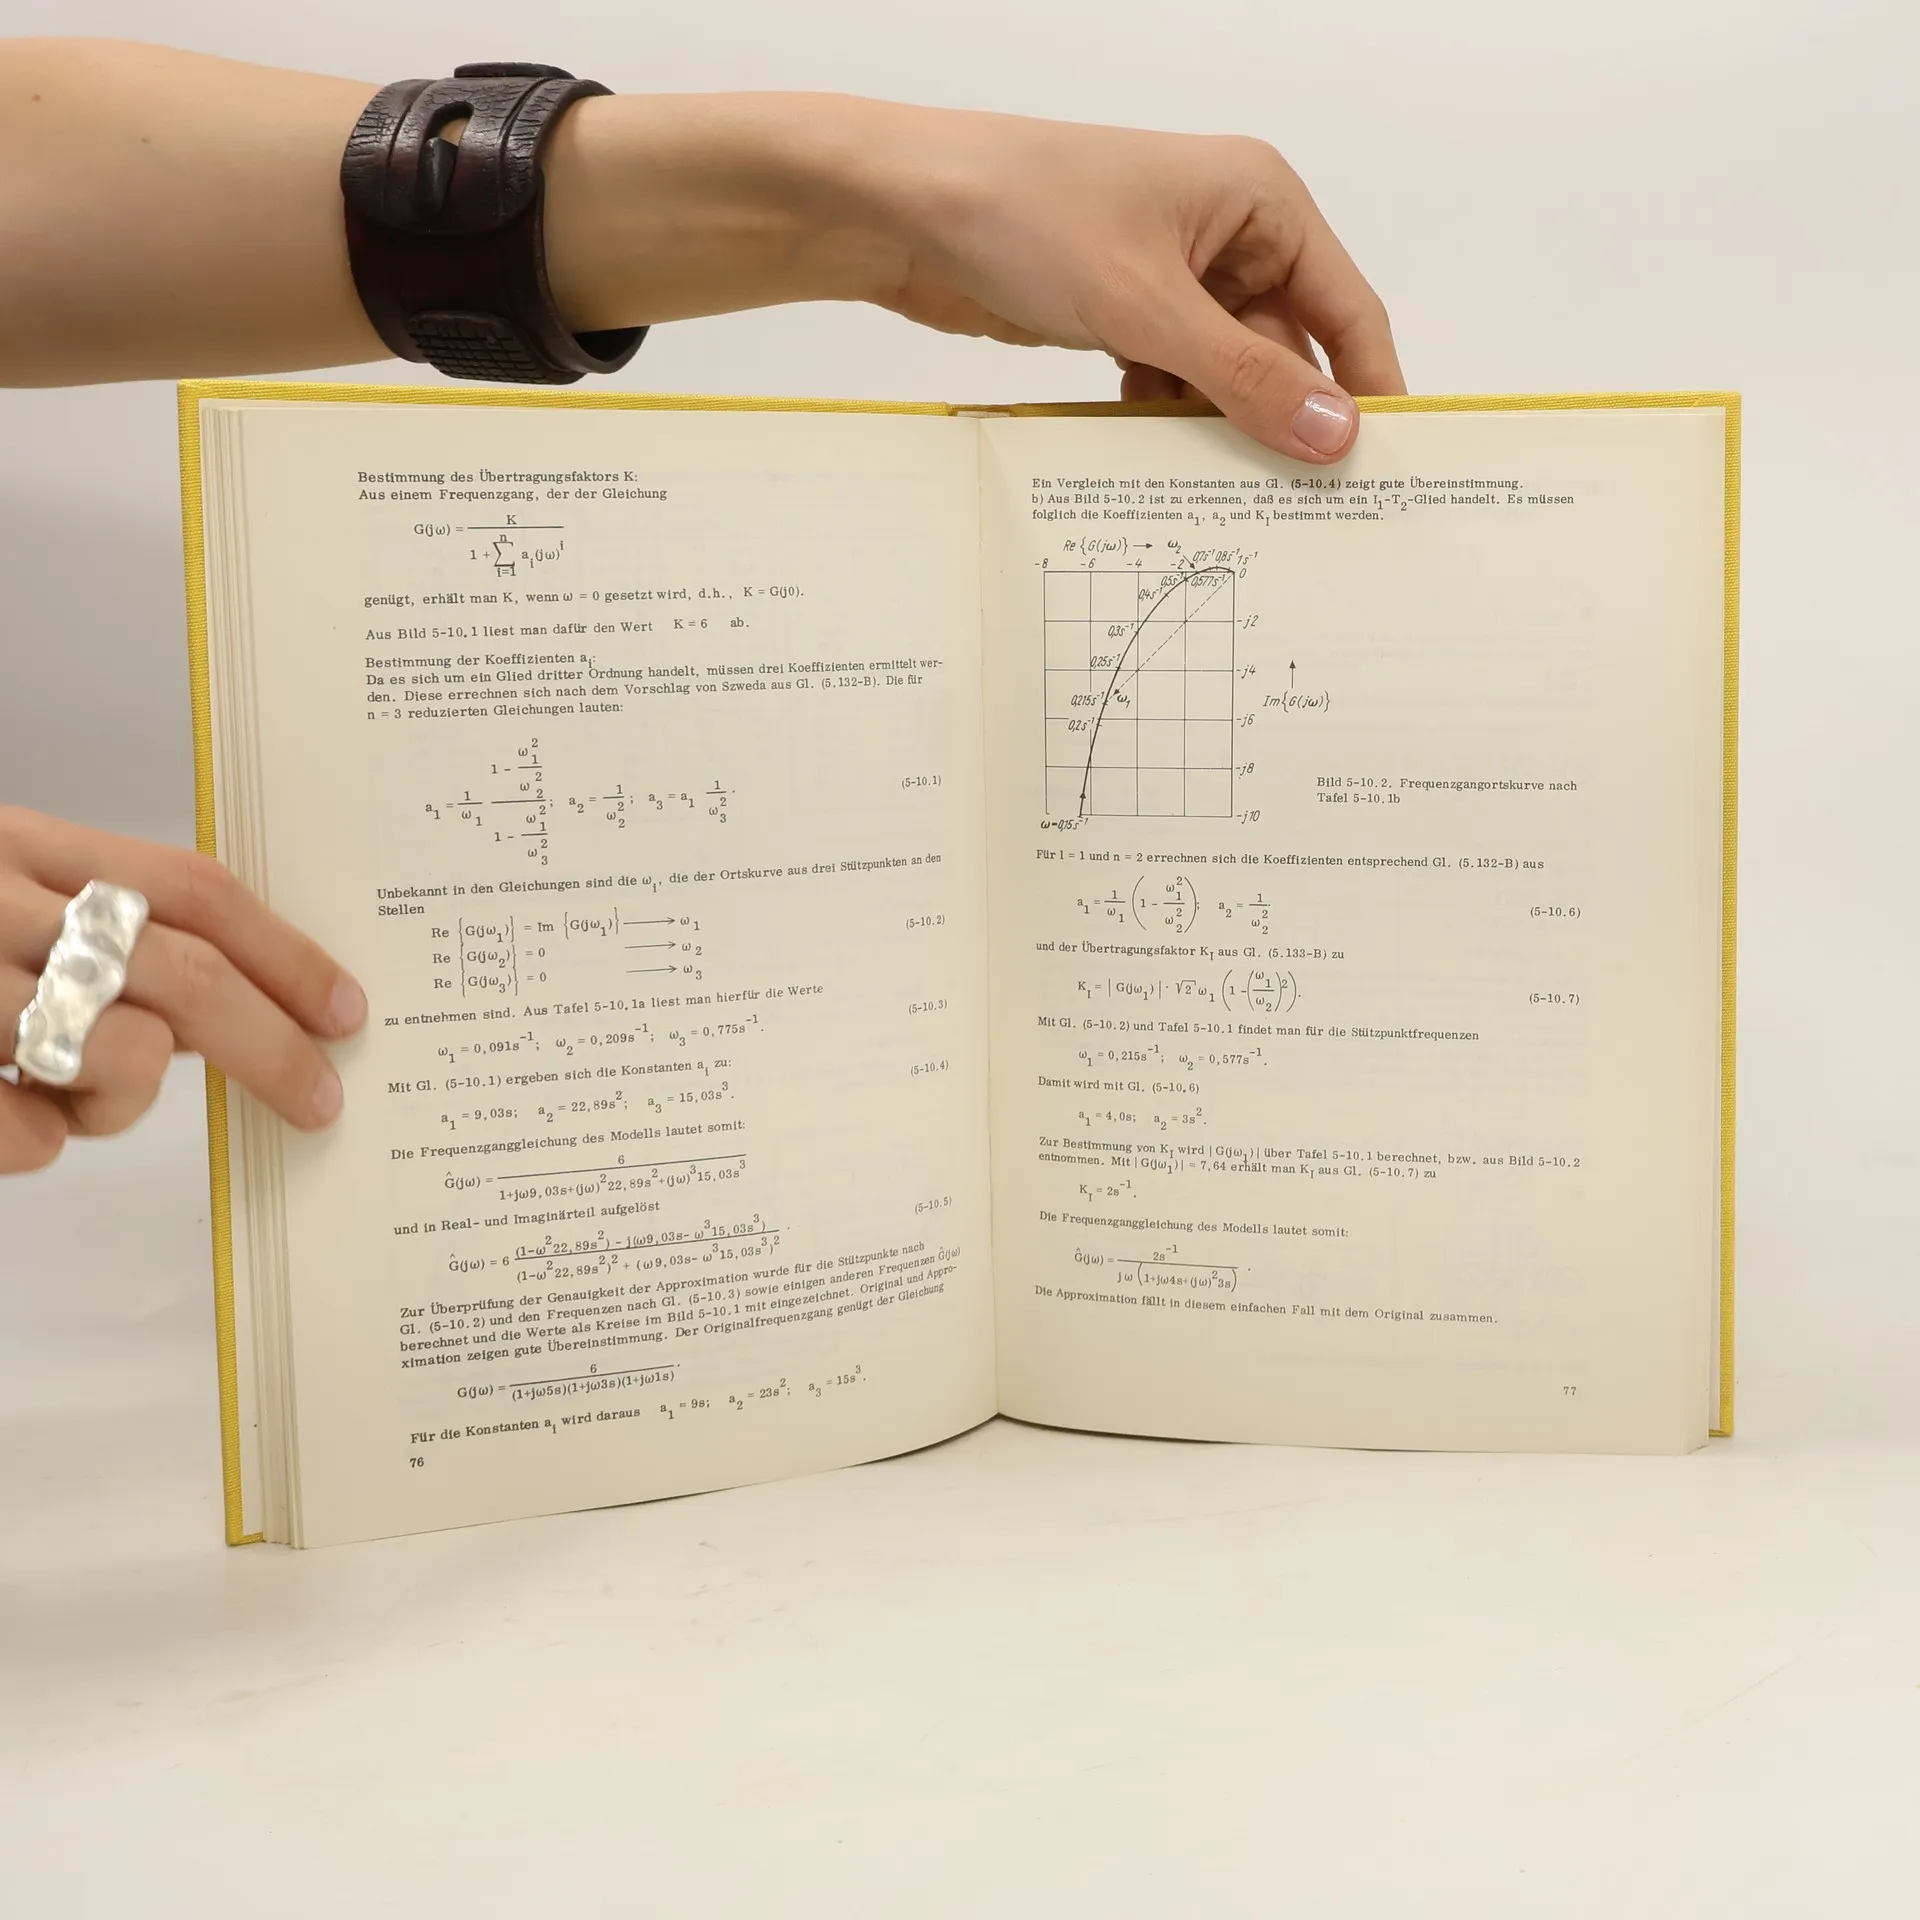 Bestimmung des Übertragungsfaktors K:
Aus einem Frequenzgang, der der Gleichung
G(jω) = K / (1 + Σ_{i=1}^{n} a_i(jω)^i)
genügt, erhält man K, wenn ω = 0 gesetzt wird, d.h., K = G(j0).
Aus Bild 5-10.1 liest man dafür den Wert K = 6 ab.
Bestimmung der Koeffizienten a_i:
Da es sich um ein Glied dritter Ordnung handelt, müssen drei Koeffizienten ermittelt wer-
den. Diese errechnen sich nach dem Vorschlag von Szweda aus Gl. (5.132-B). Die für
n = 3 reduzierten Gleichungen lauten:
a_1 = 1/ω_1 · (1 - ω_1^2/ω_2^2) / (1 - ω_1^2/ω_3^2); a_2 = 1/ω_2^2; a_3 = a_1 1/ω_3^2. (5-10.1)
Unbekannt in den Gleichungen sind die ω_i, die der Ortskurve aus drei Stützpunkten an den
Stellen
Re {G(jω_1)} = Im {G(jω_1)} → ω_1 (5-10.2)
Re {G(jω_2)} = 0 → ω_2
Re {G(jω_3)} = 0 → ω_3
zu entnehmen sind. Aus Tafel 5-10.1a liest man hierfür die Werte
ω_1 = 0,091s^-1; ω_2 = 0,209s^-1; ω_3 = 0,775s^-1. (5-10.3)
Mit Gl. (5-10.1) ergeben sich die Konstanten a_i zu:
a_1 = 9,03s; a_2 = 22,89s^2; a_3 = 15,03s^3. (5-10.4)
Die Frequenzganggleichung des Modells lautet somit:
Ĝ(jω) = 6 / (1+jω9,03s+(jω)^2 22,89s^2+(jω)^3 15,03s^3)
und in Real- und Imaginärteil aufgelöst
Ĝ(jω) = 6 ((1-ω^2 22,89s^2) - j(ω9,03s- ω^3 15,03s^3)) / ((1-ω^2 22,89s^2)^2 + (ω9,03s- ω^3 15,03s^3)^2). (5-10.5)
Zur Überprüfung der Genauigkeit der Approximation wurde für die Stützpunkte nach
Gl. (5-10.2) und den Frequenzen nach Gl. (5-10.3) sowie einigen anderen Frequenzen Ĝ(jω)
berechnet und die Werte als Kreise im Bild 5-10.1 mit eingezeichnet. Original und Appro-
ximation zeigen gute Übereinstimmung. Der Originalfrequenzgang genügt der Gleichung
G(jω) = 6 / ((1+jω5s)(1+jω3s)(1+jω1s)).
Für die Konstanten a_i wird daraus a_1 = 9s; a_2 = 23s^2; a_3 = 15s^3.
76
Ein Vergleich mit den Konstanten aus Gl. (5-10.4) zeigt gute Übereinstimmung.
b) Aus Bild 5-10.2 ist zu erkennen, daß es sich um ein I_1-T_2-Glied handelt. Es müssen
folglich die Koeffizienten a_1, a_2 und K_I bestimmt werden.
Re {G(jω)} → ω_2 0,7s^-1 0,8s^-1 1s^-1
-8 -6 -4 -2 0
0,5s^-1 0,577s^-1
0,4s^-1
-j2
0,3s^-1
0,25s^-1
-j4
0,215s^-1 ω_1 Im{G(jω)}
0,2s^-1 -j6
-j8
-j10
ω=0,15s^-1
Bild 5-10.2. Frequenzgangortskurve nach
Tafel 5-10.1b
Für l = 1 und n = 2 errechnen sich die Koeffizienten entsprechend Gl. (5.132-B) aus
a_1 = 1/ω_1 (1 - ω_1^2/ω_2^2); a_2 = 1/ω_2^2. (5-10.6)
und der Übertragungsfaktor K_I aus Gl. (5.133-B) zu
K_I = | G(jω_1) | · √2 ω_1 (1 - (ω_1/ω_2)^2). (5-10.7)
Mit Gl. (5-10.2) und Tafel 5-10.1 findet man für die Stützpunktfrequenzen
ω_1 = 0,215s^-1; ω_2 = 0,577s^-1.
Damit wird mit Gl. (5-10.6)
a_1 = 4,0s; a_2 = 3s^2.
Zur Bestimmung von K_I wird | G(jω_1) | über Tafel 5-10.1 berechnet, bzw. aus Bild 5-10.2
entnommen. Mit | G(jω_1) | = 7,64 erhält man K_I aus Gl. (5-10.7) zu
K_I = 2s^-1.
Die Frequenzganggleichung des Modells lautet somit:
Ĝ(jω) = 2s^-1 / (jω (1+jω4s+(jω)^2 3s)).
Die Approximation fällt in diesem einfachen Fall mit dem Original zusammen.
77